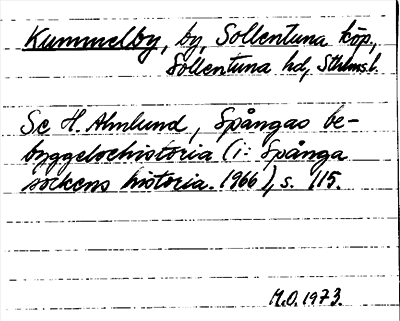 Kummelby, by, Sollentuna köp.,
Sollentuna hd, Sthlms l.
Se H. Ahnlund, Spångas be-
byggelsehistoria (i: Spånga
sockens historia. 1966), s. 115.
M.O. 1973.